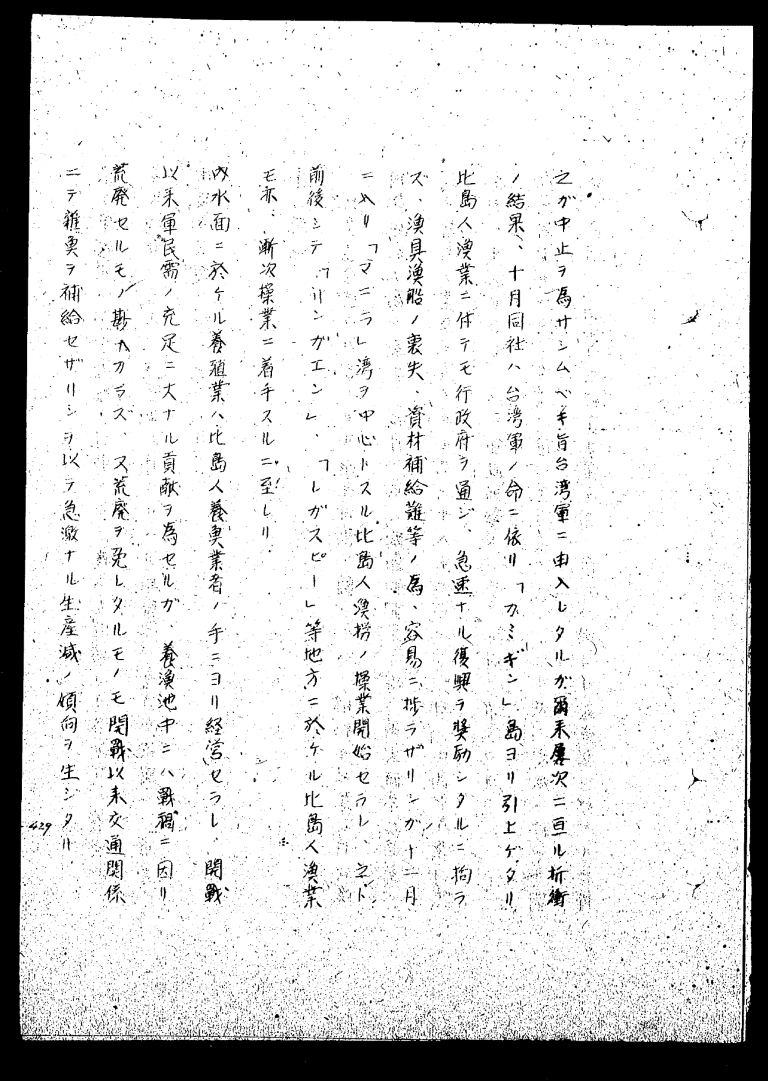 之ガ中止ヲ為サシムベキ旨台湾軍ニ申入レタルガ爾来屡次ニ亘ル折衝
ノ結果、十月同社ハ台湾軍ノ命ニ依リ「カミギン」島ヨリ引上ゲタリ
比島人漁業ニ付テモ行政府ヲ通ジ、急速ナル復興ヲ奨励シタルニ拘ラ
ズ、漁具漁船ノ喪失、資材補給難等ノ為、容易ニ捗ラザリシガ十二月
ニ入リ「マニラ」湾ヲ中心トスル比島人漁撈ノ操業開始セラレ、之ト
前後シテ「リンガエン」、「レガスピー」等地方ニ於ケル比島人漁業
モ亦、漸次操業ニ着手スルニ至レリ
内水面ニ於ケル養殖業ハ比島人養魚業者ノ手ニヨリ経営セラレ、開戦
以来軍民需ノ充足ニ大ナル貢献ヲ為セルガ、養漁池中ニハ戦禍ニ因リ
荒廃セルモノ尠カラズ、又荒廃ヲ免レタルモノモ開戦以来交通関係
ニテ稚魚ヲ補給セザリシヲ以テ急激ナル生産減ノ傾向ヲ生ジタリ
429